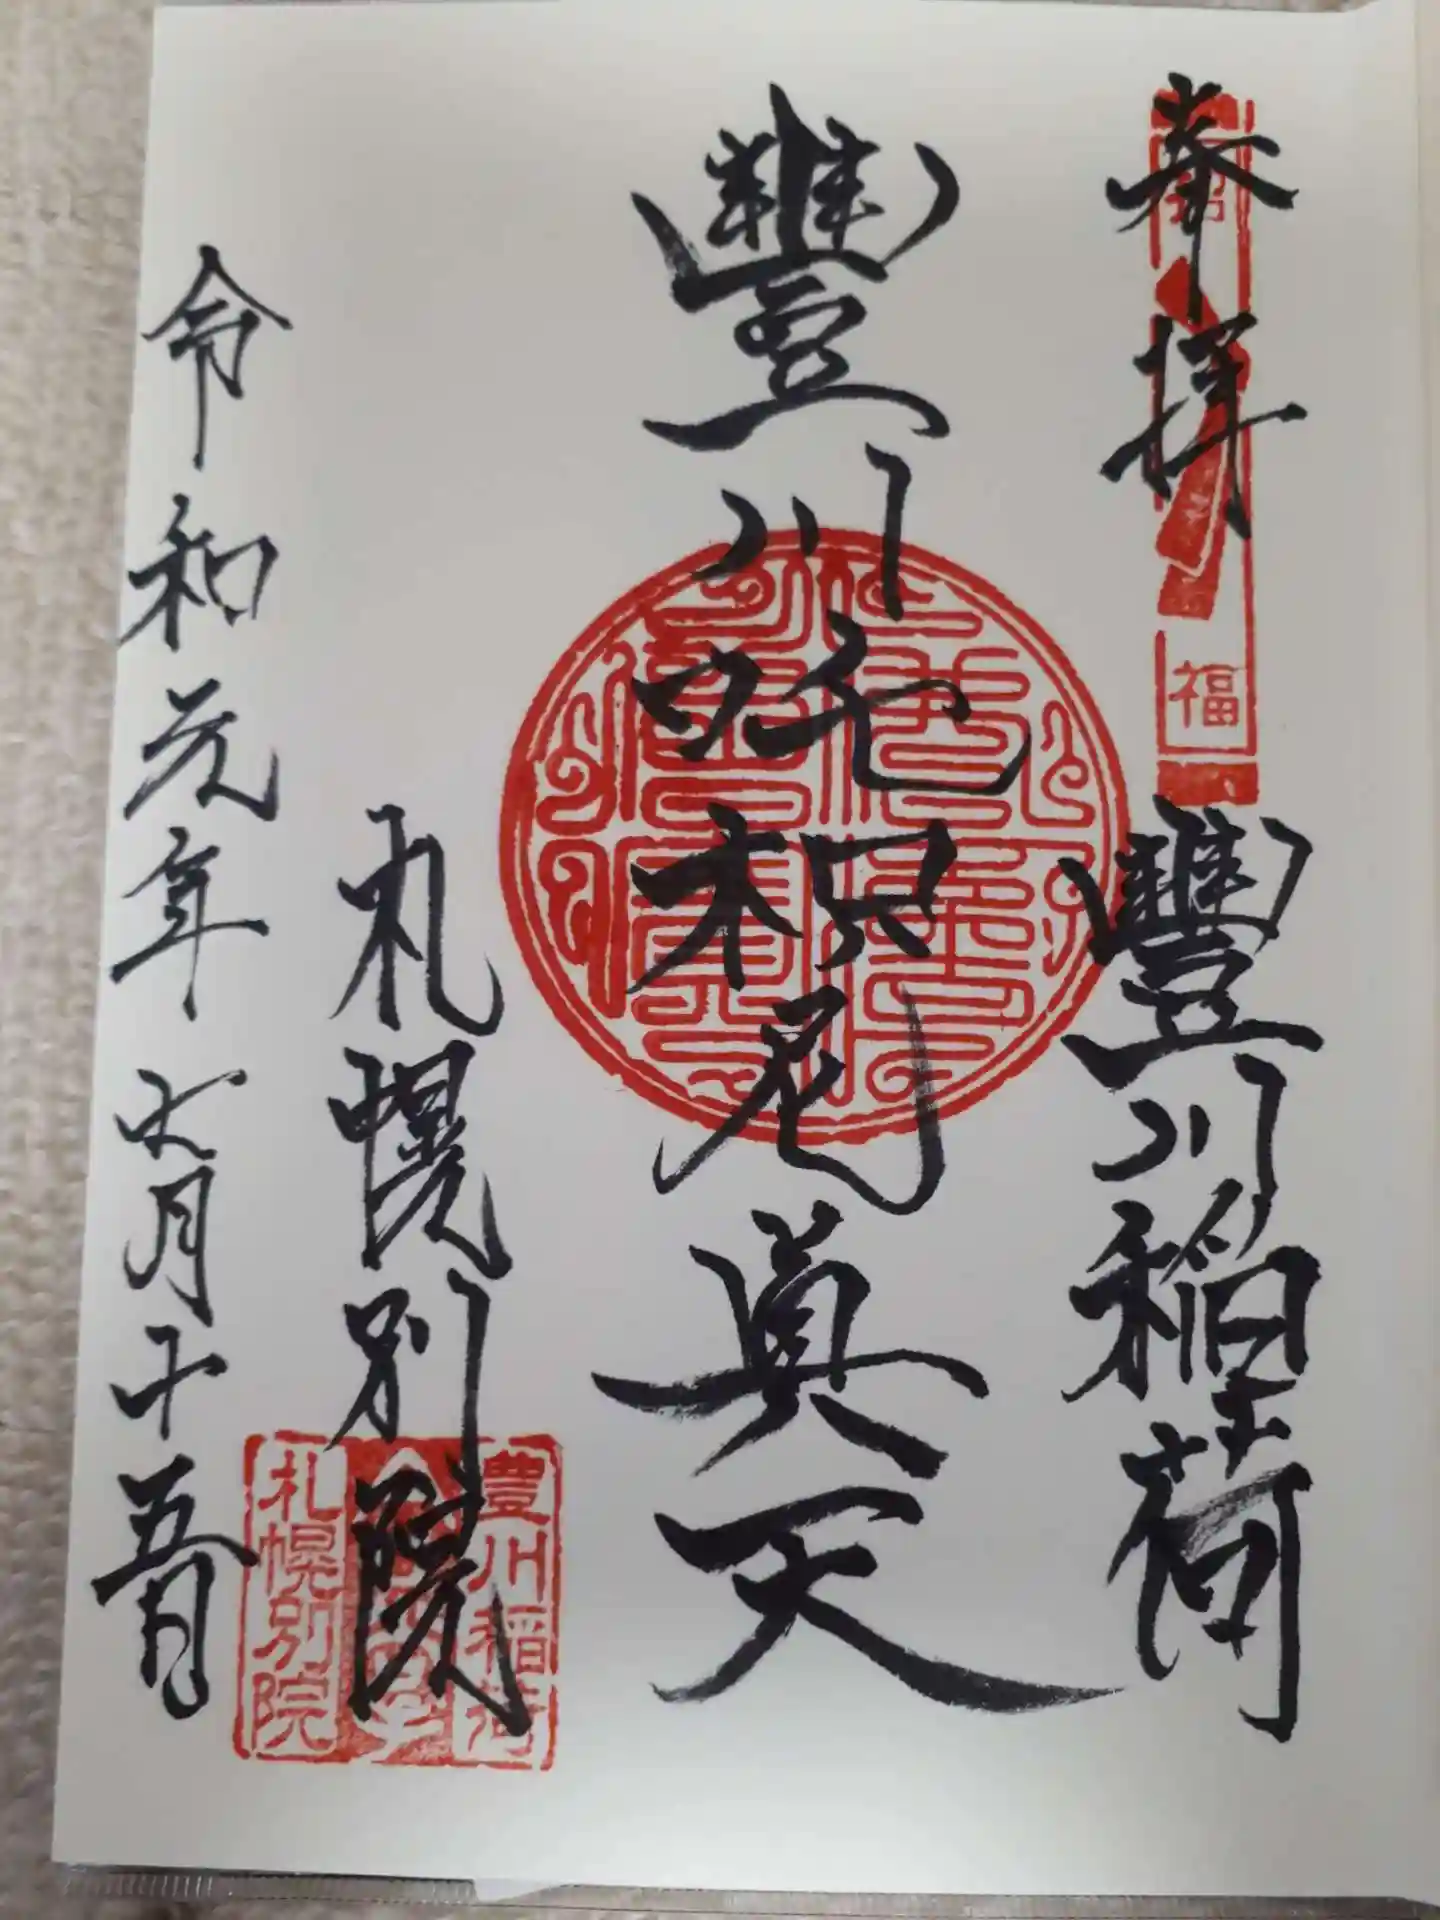 奉拝
福
豐川稲荷
豐川吒枳尼眞天
札幌別院
豊川稲荷
札幌別院
令和元年七月十五日